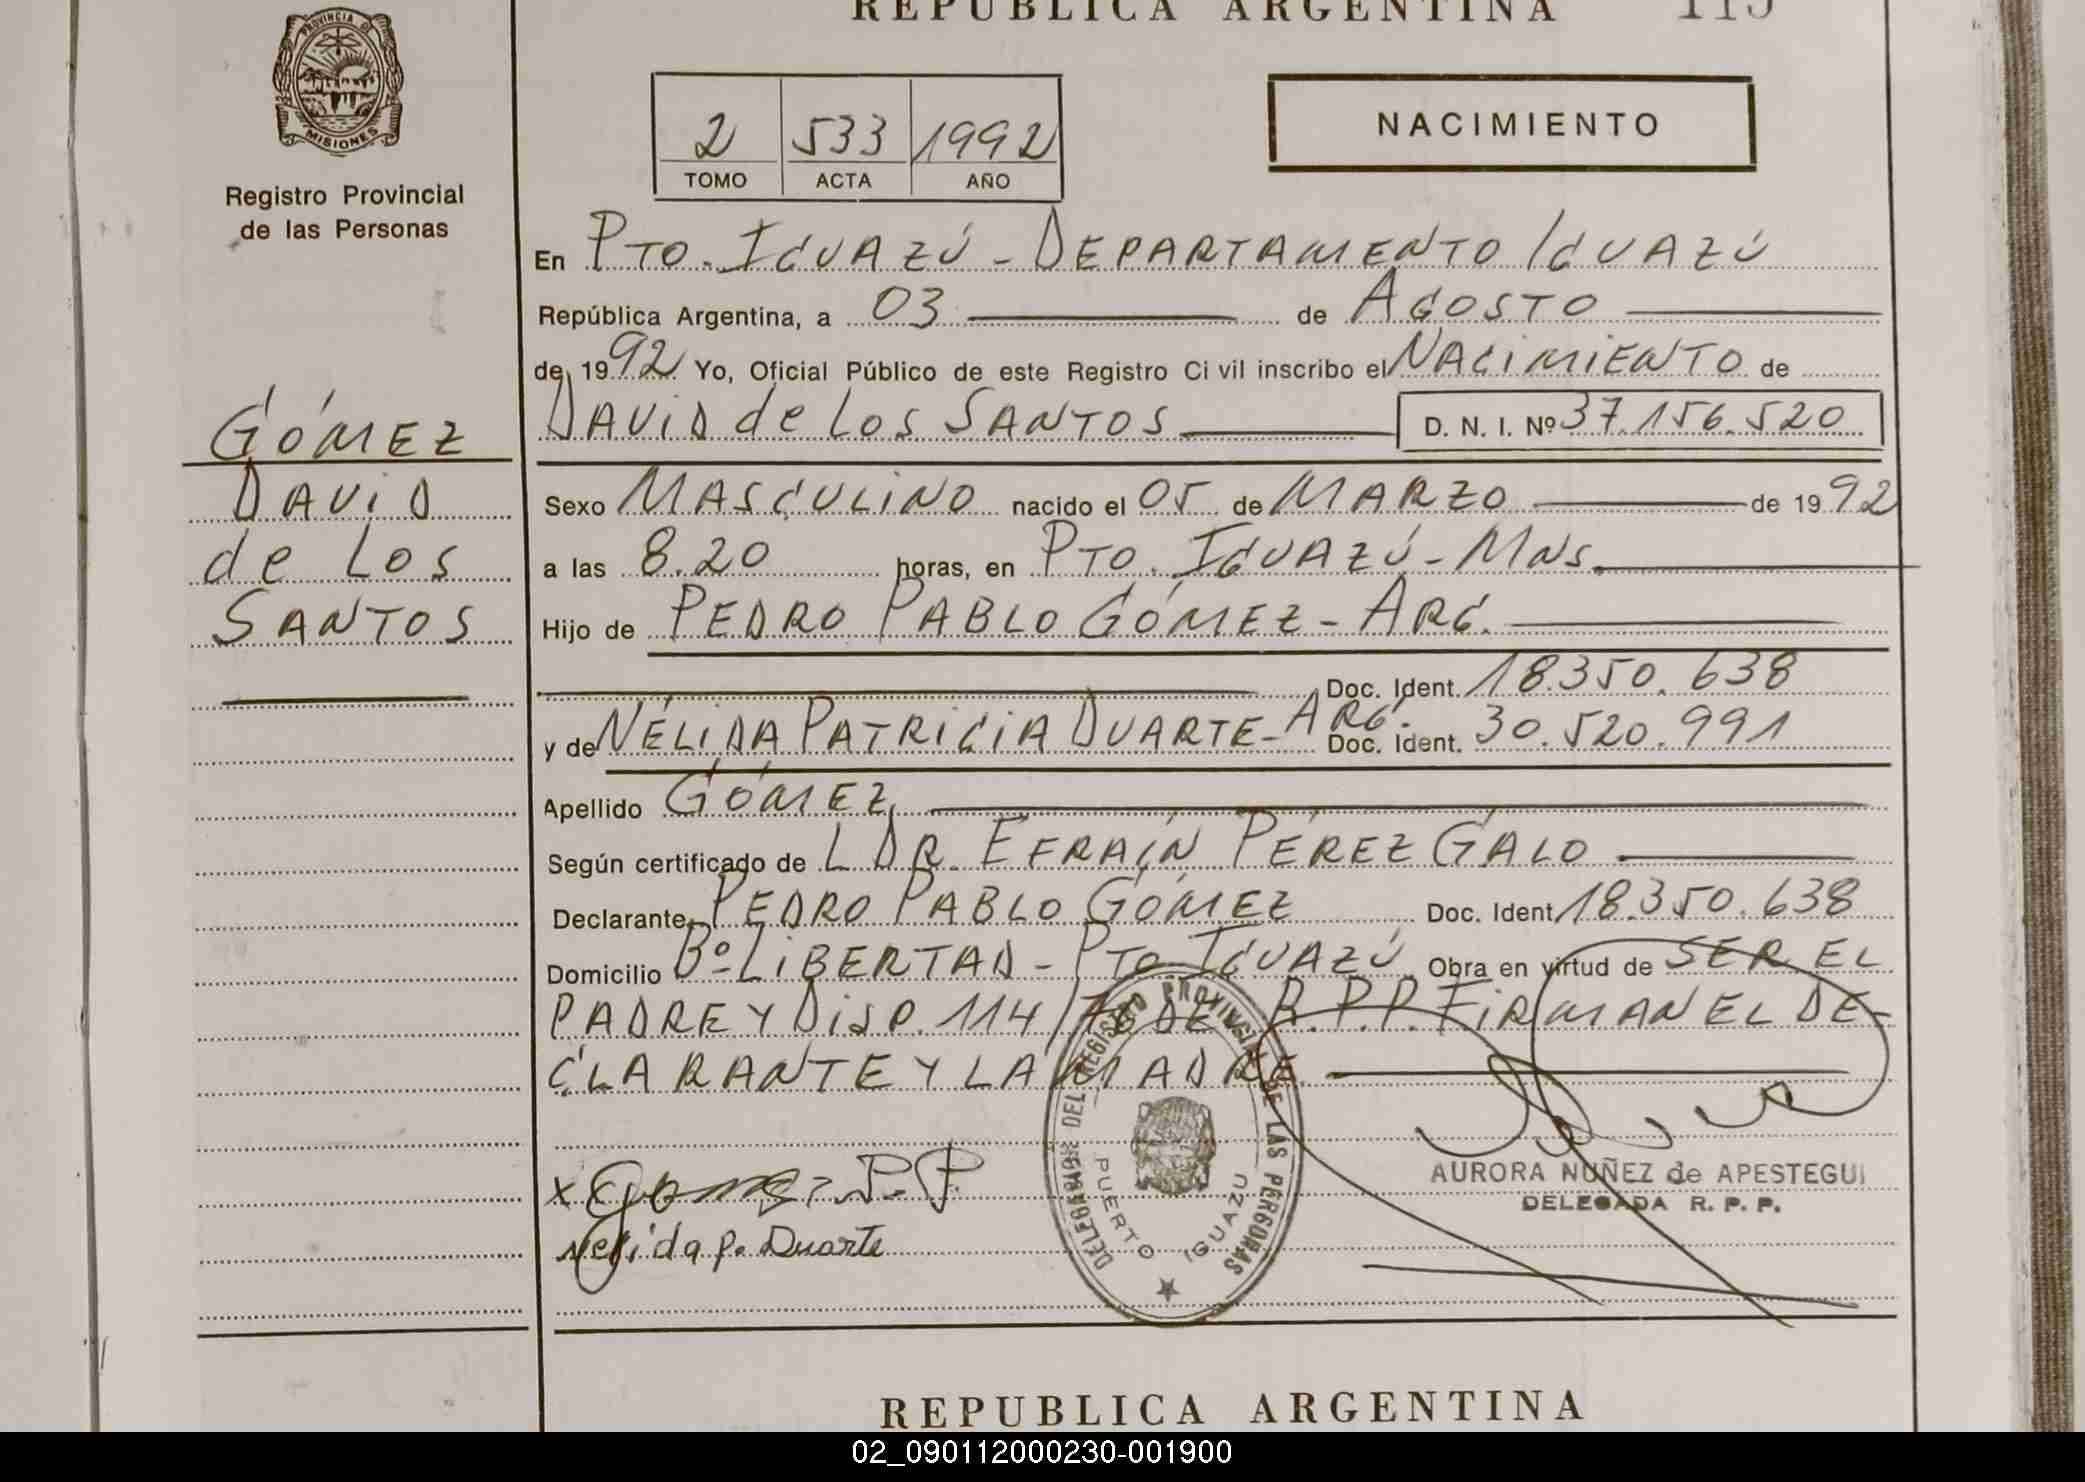 REPUBLICA ARGENTINA 115
PROVINCIA DE
MISIONES
Registro Provincial
de las Personas
2 533 1992
TOMO ACTA AÑO
NACIMIENTO
En PTO. IGUAZÚ - DEPARTAMENTO IGUAZÚ
República Argentina, a 03 de AGOSTO
de 1992 Yo, Oficial Público de este Registro Ci vil inscribo el NACIMIENTO de
DAVID de LOS SANTOS D. N. I. Nº 37.156.520
GÓMEZ
DAVID
de LOS
SANTOS
Sexo MASCULINO nacido el 05 de MARZO de 1992
a las 8.20 horas, en PTO. IGUAZÚ - MNS.
Hijo de PEDRO PABLO GÓMEZ - ARG.
Doc. Ident. 18.350.638
y de NÉLIDA PATRICIA DUARTE - ARG. Doc. Ident. 30.520.991
Apellido GÓMEZ
Según certificado de L DR. EFRAÍN PÉREZ GALO
Declarante PEDRO PABLO GÓMEZ Doc. Ident. 18.350.638
Domicilio Bº LIBERTAD - PTO IGUAZÚ Obra en virtud de SER EL
PADRE Y DISP. 114/78 DE R.P.P. FIRMAN EL DE-
CLARANTE Y LA MADRE.
DEL REGISTRO PROVINCIAL DE LAS PERSONAS
PUERTO IGUAZU
x Gomez P.P.
Nelida P. Duarte
AURORA NUÑEZ de APESTEGUI
DELEGADA R. P. P.
REPUBLICA ARGENTINA
02_090112000230-001900